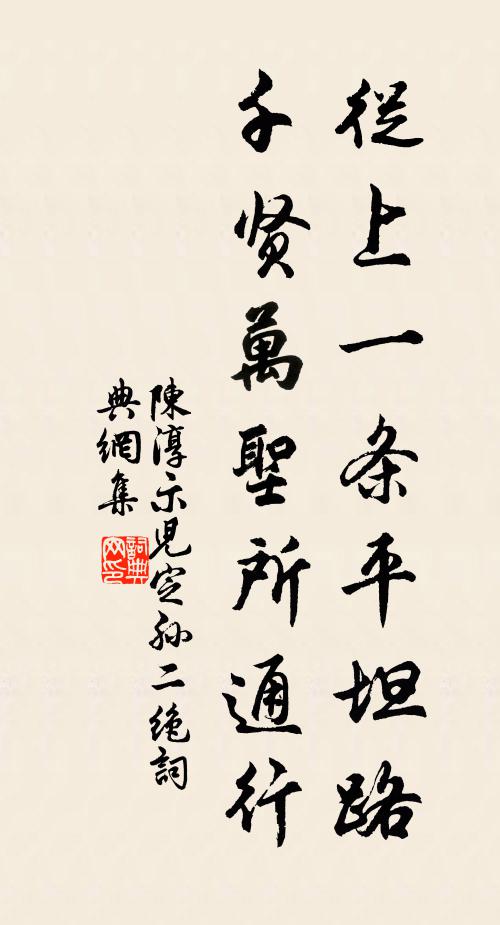 從上一条平坦路
千贤萬聖所通行
陳淳示児定孫二絶詞
典網集
詞典網印